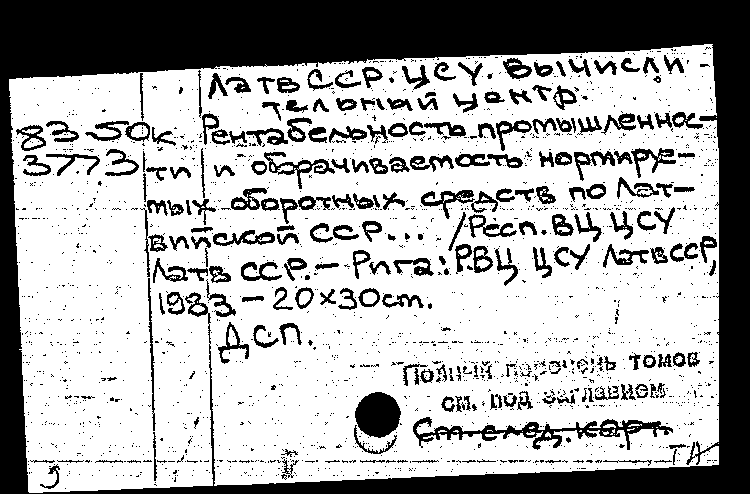 ЛатвССР. ЦСУ. Вычисли-
тельный центр.
83-50к Рентабельность промышленнос-
3773 ти и оборачиваемость нормируе-
мых оборотных средств по Лат-
вийской ССР... /Респ. ВЦ ЦСУ
Латв ССР. — Рига: РВЦ ЦСУ ЛатвССР,
1983. — 20х30см.
ДСП.
Полный перечень томов
см. под заглавием
См. след. карт.
ТА